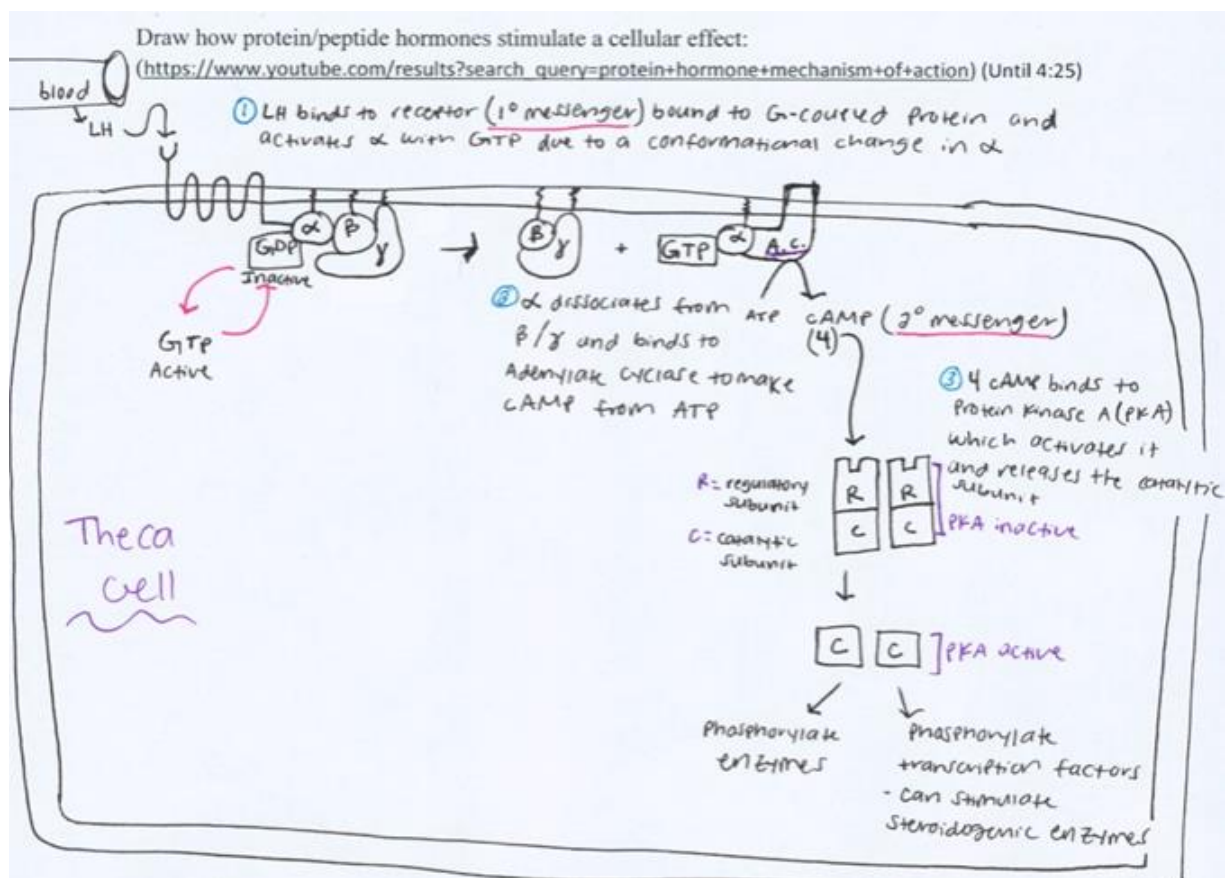 Draw how protein/peptide hormones stimulate a cellular effect:
(https://www.youtube.com/results?search_query=protein+hormone+mechanism+of+action) (Until 4:25)
blood
LH
① LH binds to receptor (1° messenger) bound to G-coupled Protein and
activates α with GTP due to a conformational change in α
α
β
γ
GDP
Inactive
GTP
Active
β
γ
+
GTP
α
A.C.
② α dissociates from
β/γ and binds to
Adenylate cyclase to make
cAMP from ATP
ATP
cAMP (2° messenger)
(4)
③ 4 cAMP binds to
Protein Kinase A (PKA)
which activates it
and releases the catalytic
subunit
R = regulatory
subunit
C = catalytic
subunit
R
R
C
C
PKA inactive
Theca
cell
C
C
PKA active
Phosphorylate
enzymes
Phosphorylate
transcription factors
- can stimulate
steroidogenic enzymes